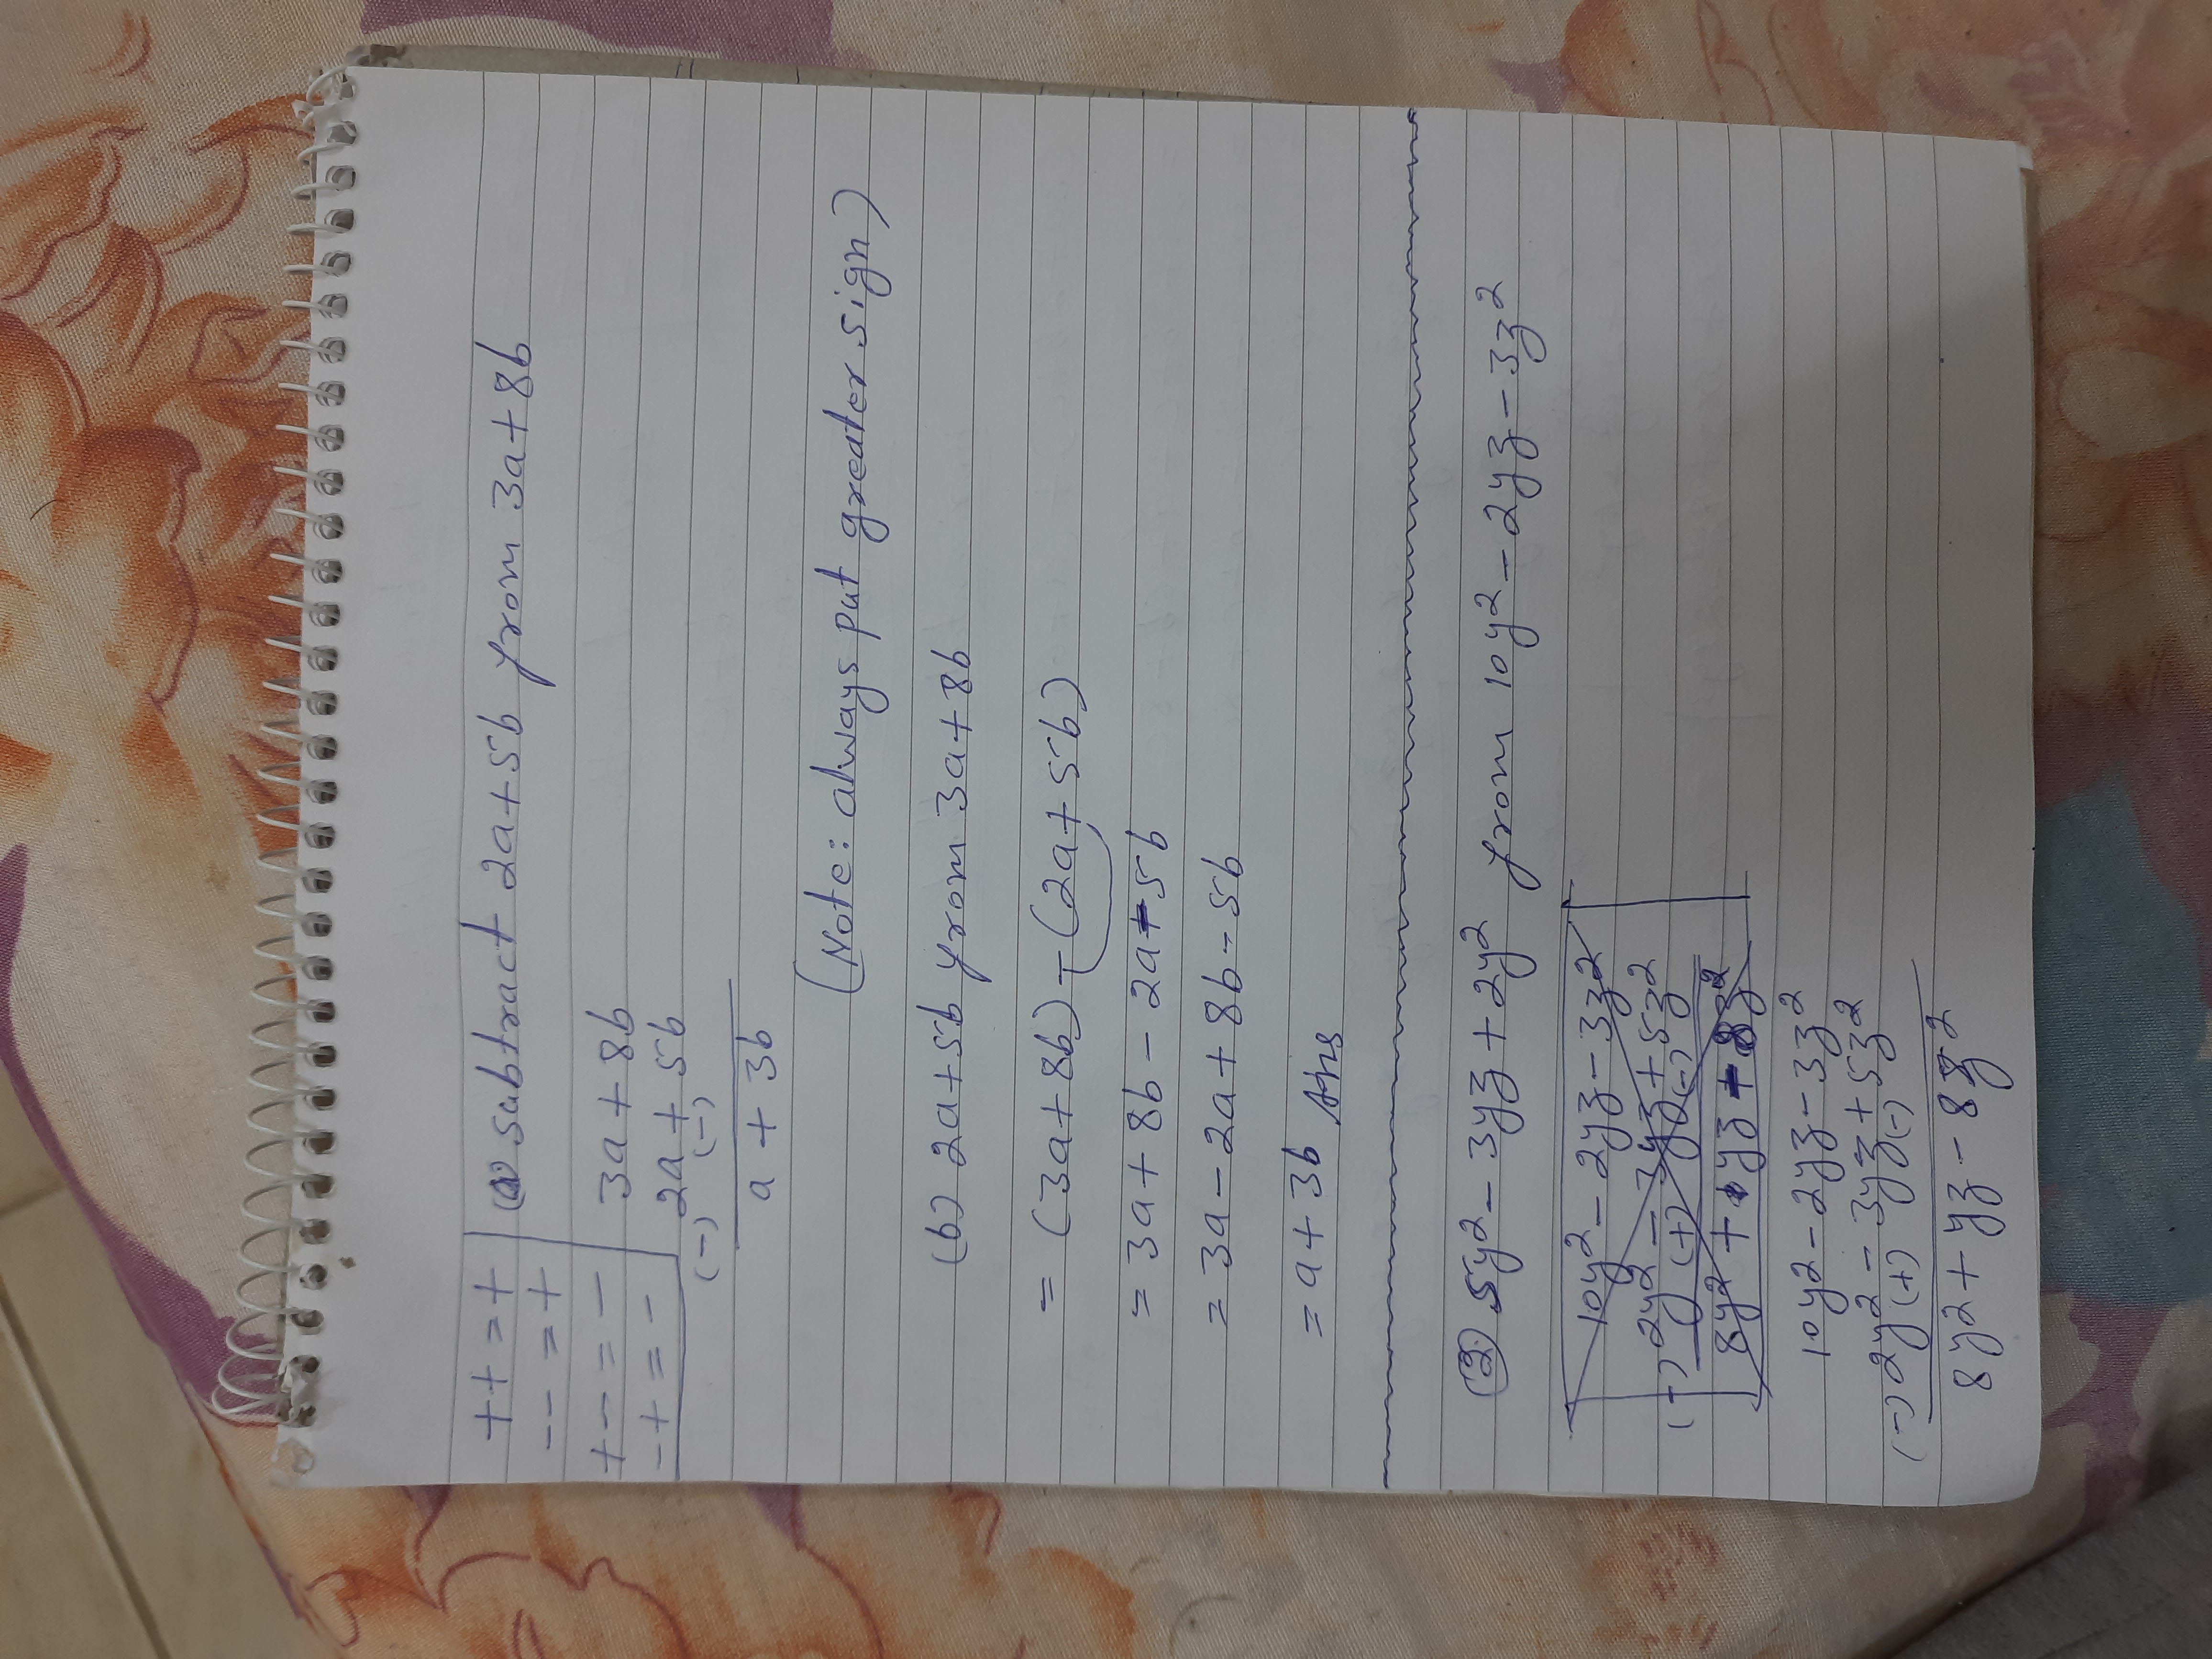 ++=+
--=+
+-=-
-+=-
(a) subtract 2a+5b from 3a+8b
3a + 8b
2a + 5b
(-) (-)
a + 3b
(Note: always put greater sign)
(b) 2a+5b from 3a+8b
= (3a+8b)-(2a+5b)
= 3a+8b-2a-5b
= 3a-2a+8b-5b
= a+3b Ans
(2) 5y²-3yz+2y² from 10y²-2yz-3z²
10y²-2yz-3z²
2y²-3yz+5z²
(-) (+) (-)
8y²+yz-8z²
10y²-2yz-3z²
2y²-3yz+5z²
(-) (+) (-)
8y²+yz-8z²